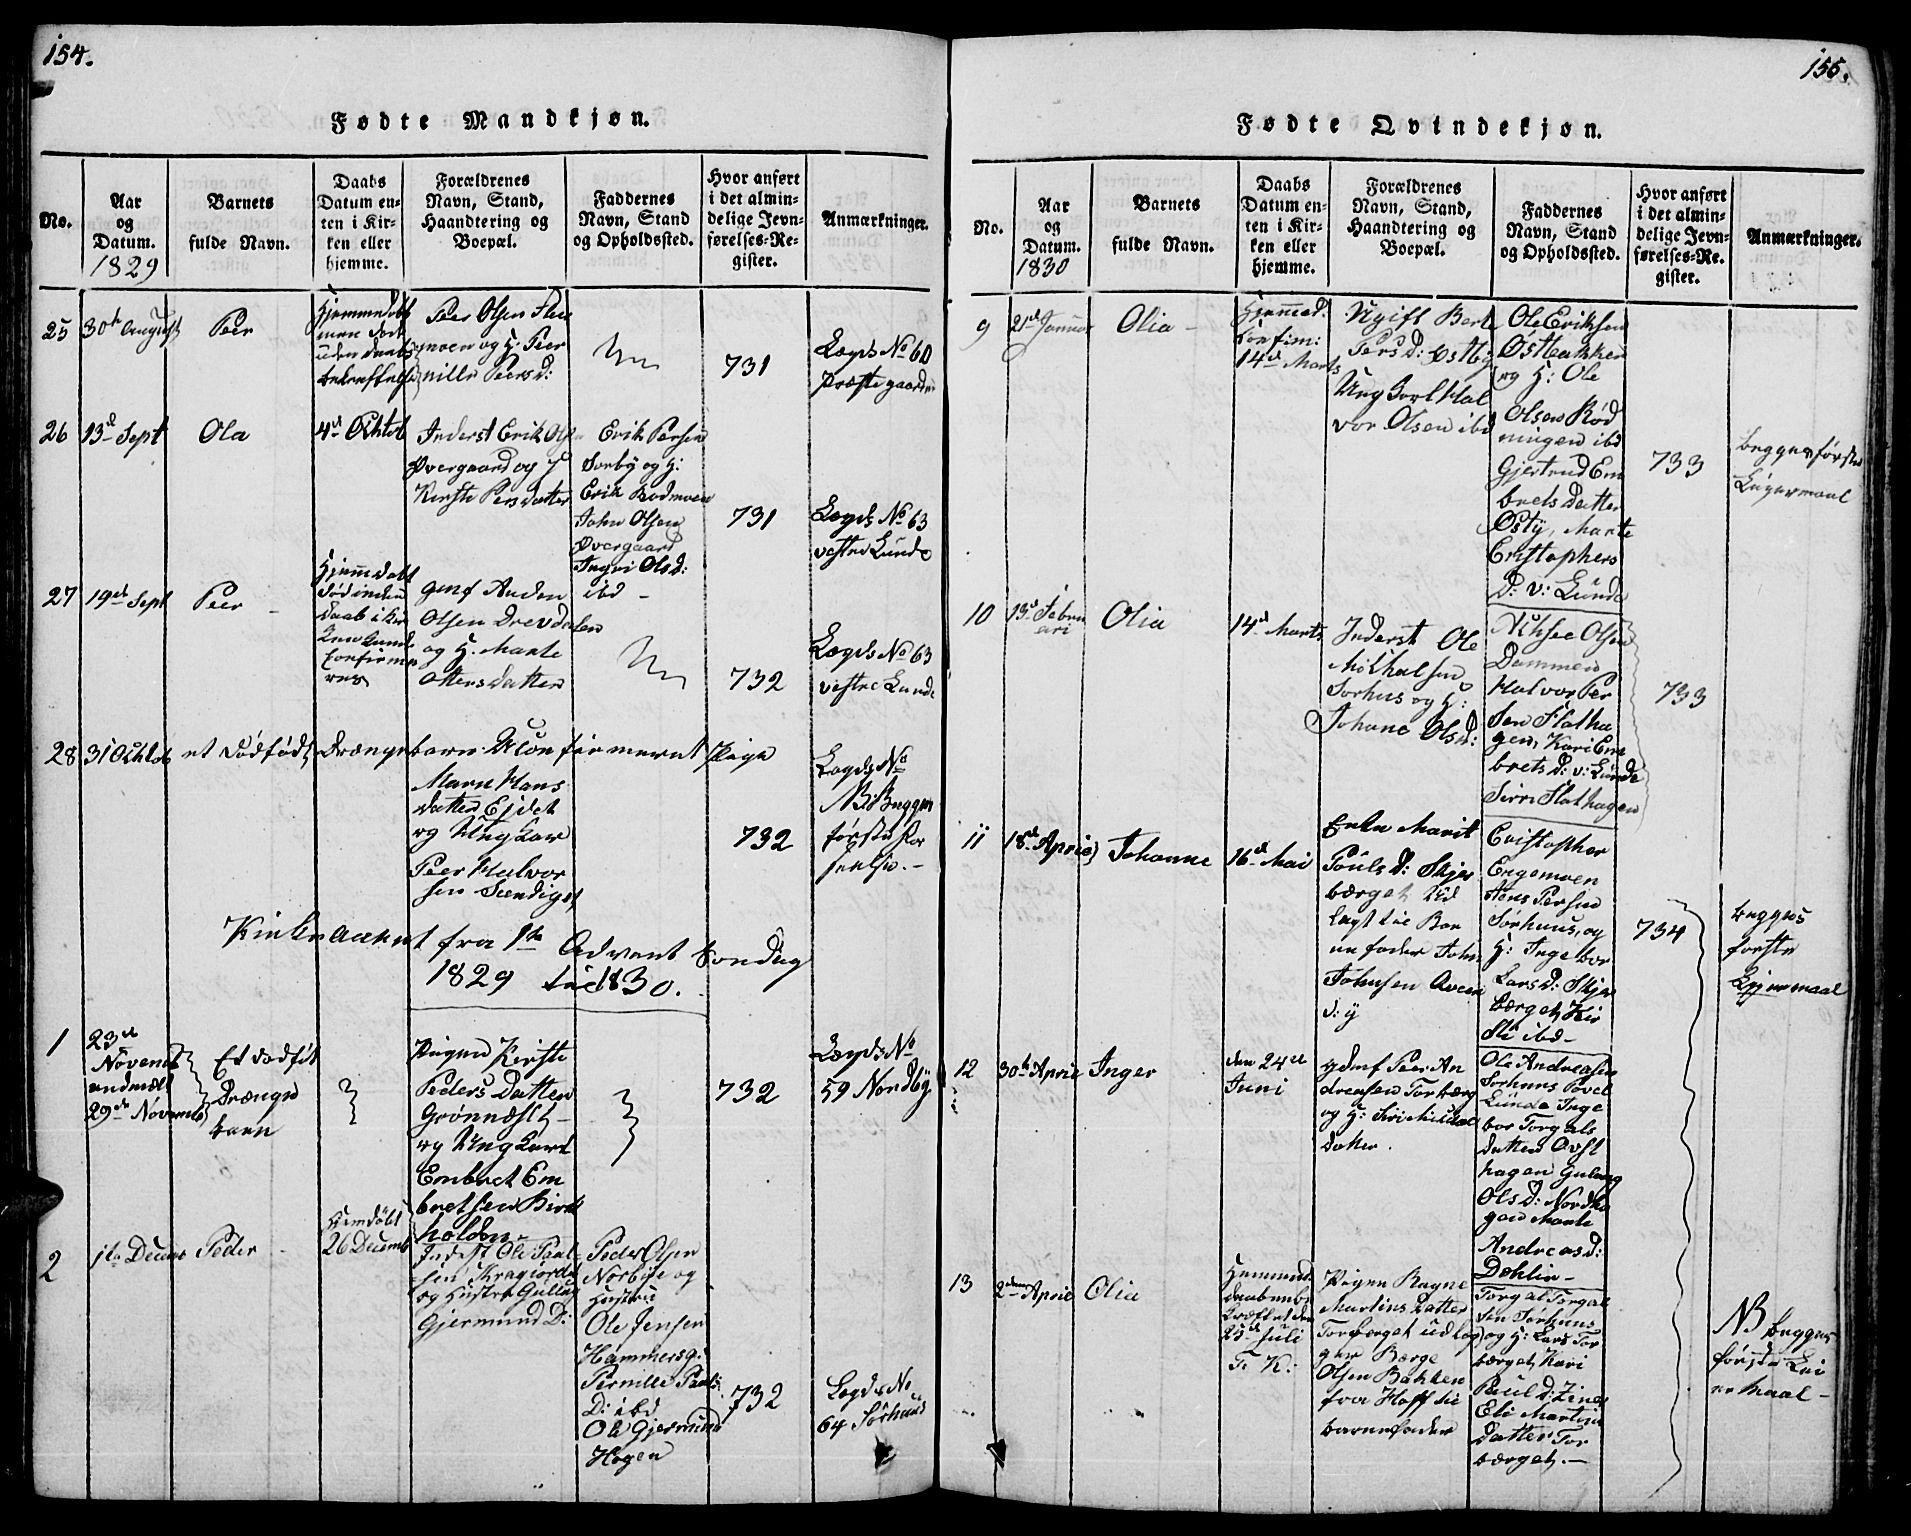 154.
Fødte Mandkjøn.
No.
Aar og Datum. 1829
Barnets fulde Navn.
Daabs Datum enten i Kirken eller hjemme.
Forældrenes Navn, Stand, Haandtering og Boepæl.
Faddernes Navn, Stand og Opholdssted.
Hvor anført i det almindelige Jevnførelses-Register.
Anmærkninger.
25
30te August
Peer
Hjemmedøbt
men død
uden daabs
Peer Olsen
moen og H. Peer
nille Peersd:
731
Lægds No 60
Præstegaarden
26
13d Sept
Ola
4d Ochtob
Inderst Erik Ols
Øvergaard og H
Kirsti Persdatter
Erik Persen
Sørby og H:
Erik Rodmoen
John Olsen
Øvergaard
Ingri Olsd:
ibd -
731
Lægds No 63
vestre Lunde
27
19d Sept
Peer -
Hjemdøbt
død inden
Daab i Kir
ken kunde
confirme
res
Olsen Drevdalen
og H. Marte
Ottersdatter
732
Lægds No 63
vestre Lunde
28
31 Ochtob
et dødfødt Drængebarn Uconfirmeret Pige
Marn Hans
datter Ejdet
og Ung Kar
Peer Halvor
sen
732
Lægds No
NB: Begges
første For
seelse. -
Kirkeaaret fra 1te Advent Sondag
1829 til 1830.
1
23d
Novemb
anmelt
29de Novemb
Et dødføt
Drænge
barn
Pigen Kirsti
Peders Datter
Grønnæset -
og Ung Karl
Embret Em
bretsen Birk
holden -
732
Lægds No
59 Nordby
2
1te Decemb
Peder -
Hiemdøbt
26 Decemb
Inderst Ole Paul
sen
og Hustru Gulløg
Gjermund D:
Peder Olsen
Norbye og
Hustrue
Ole Jensen
Hammersg:
Pernille Pauls
D: ibd
Ole Gjermund
Hagen
732
Lægds No
64 Sørhuus
155.
Fødte Qvindekjøn.
No.
Aar og Datum. 1830
Barnets fulde Navn.
Daabs Datum enten i Kirken eller hjemme.
Forældrenes Navn, Stand, Haandtering og Boepæl.
Faddernes Navn, Stand og Opholdssted.
Hvor anført i det almindelige Jevnførelses-Register.
Anmærkninger.
9
21d Januar
Olia -
Hjemmed.
Confirm:
14d Marts
Ugift Berte
Persd: Østby
Ung Karl Hal
vor Olsen ibd
Ole Eriksen
Østbakken
og H: Ole
Olsen Rød
ningen ibd
Gjertrud Em
brets Datter
Østby, Marte
Christophers
D: v: Lunde
733
begges første
Leyermaal
10
13d Febru
ari
Olia
14d Marts
Inderst Ole
Mikkelsen
Sørhus og H:
Johane Olsd:
Olsen
Dammen
Halvor Per
sen Flatha
gen, Kari Em
bretsd: v: Lunde
Sirri Flathagen
733
11
18d April
Johanne
16d Mai
Enke Marit
Poulsd: Skjær
bærget Ud
lagt til Bar
nefader John
Johnsen
Christopher
Engemoen
Hans Persen
Sørhuus, og
H: Ingebor
Larsd: Skjær
bærget, Kir
sti ibd -
734
begges
første
Leiermaal
12
30te April
Inger
den 24de
Juni
Peer An
dreasen Torbærg
og H: Siri Mikkels
datter.
Ole Andreasen
Sørhuus Povel
Lunde Inge
bor Torgals
datter Øvst
hagen Guloug
Olsd: Nordha
gen Marte
Andreasd:
Døhlin -
13
2den April
Olia
Hjemmed.
25d Juli
T. K:
Pigen Ragne
Martins Datter
Torberget udlæg
ger Børge
Olsen Bakken
fra Hoff til
barnefader
Torgal Torgal
sen Sørhuus
og H: Lars Tor
bærget, Kari
Pauld:
Eli Martins
Datter Tor
bærget. -
NB begges
første Lei
ermaal -